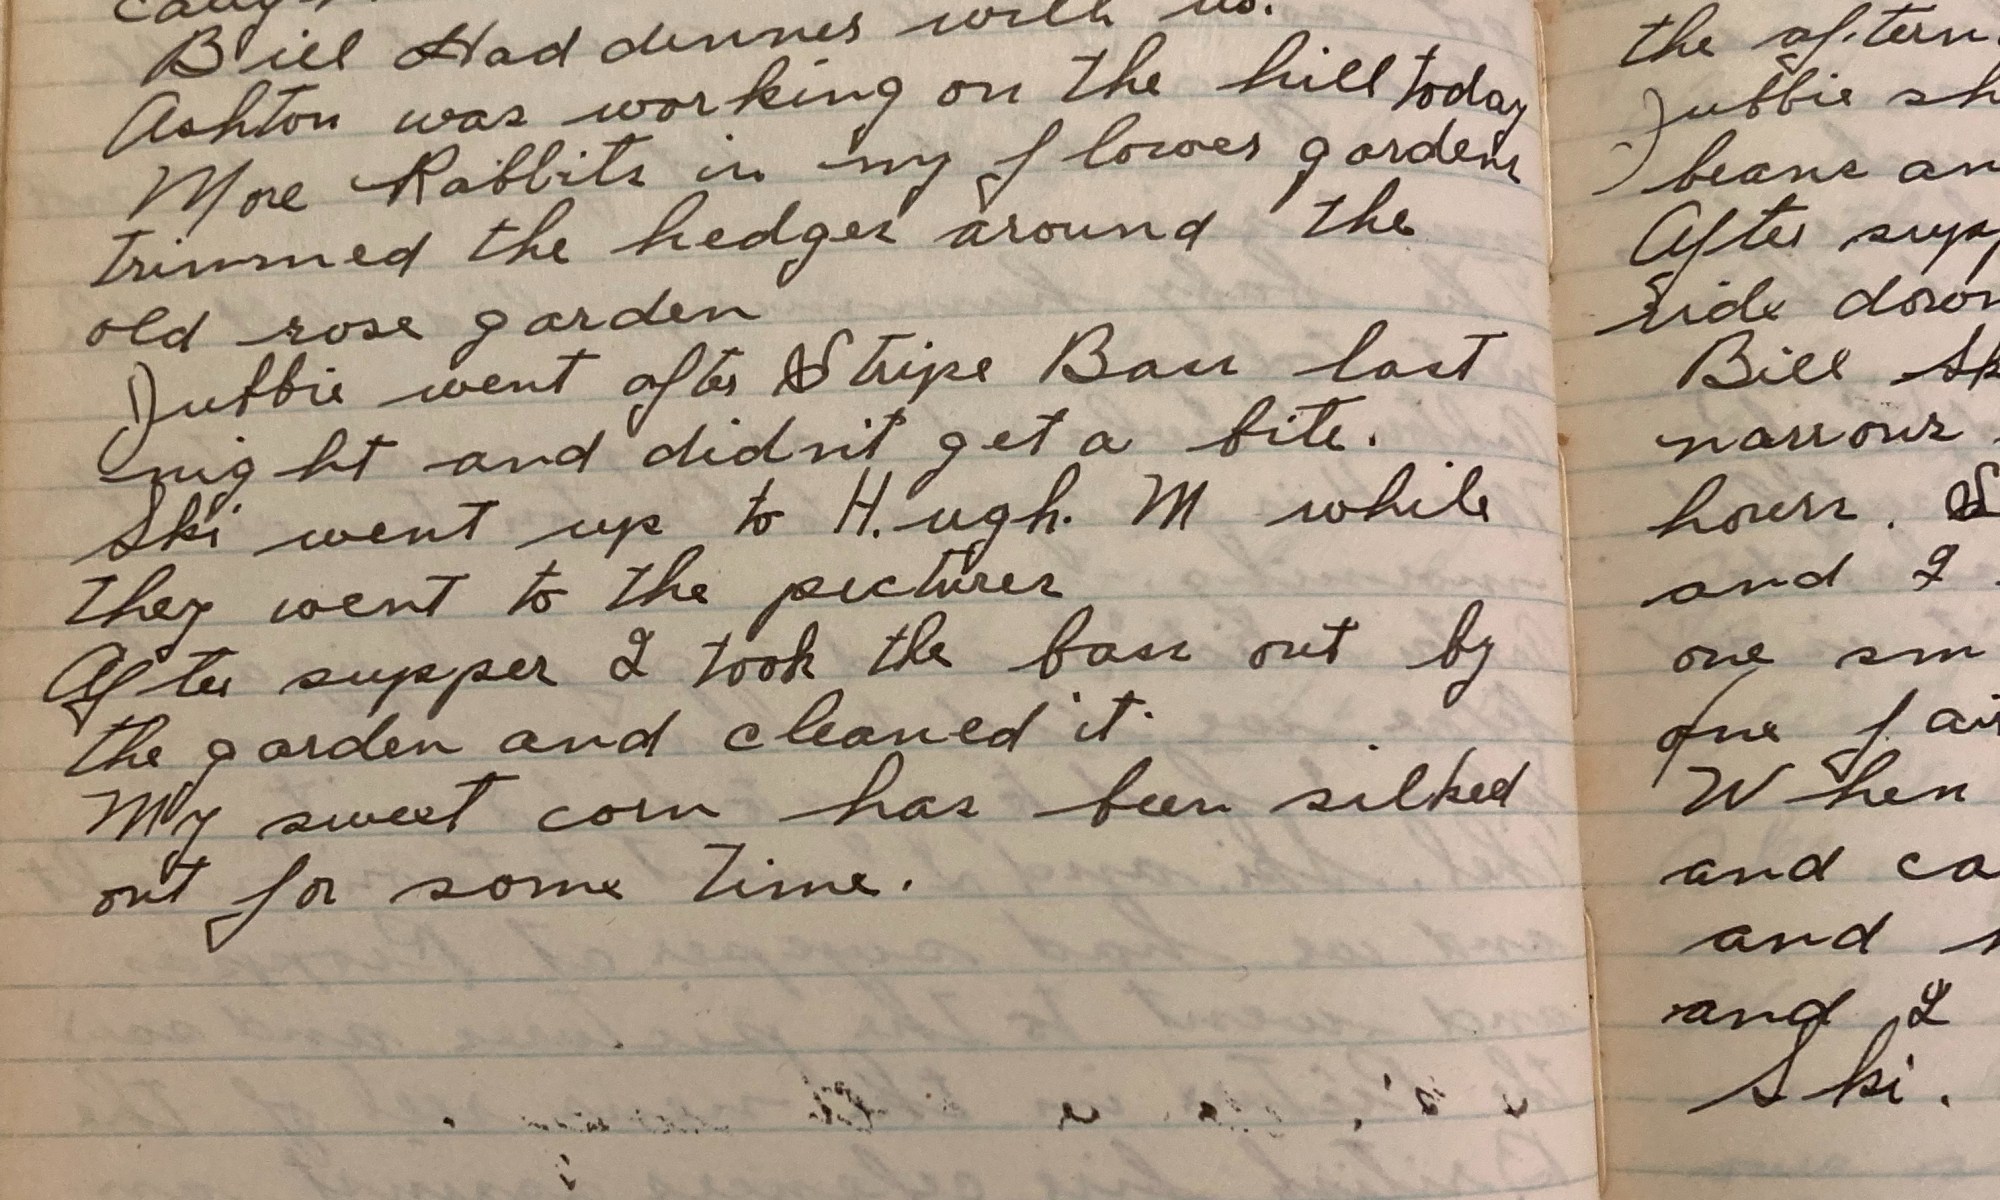 Bill Had dinner with us.
Ashton was working on the hill today
More Rabbits in my flower gardens
trimmed the hedges around the
old rose garden
Jubbie went after Stripe Bass last
night and didn't get a bite.
Ski went up to H.ugh. M while
they went to the pictures
After supper I took the bass out by
the garden and cleaned it.
My sweet corn has been silked
out for some Time.
the aftern
Jubbie sh
beans an
After supp
ride down
Bill Sk
narrows
hours. S
and I
one sm
one fair
When
and ca
and
and I
Ski.